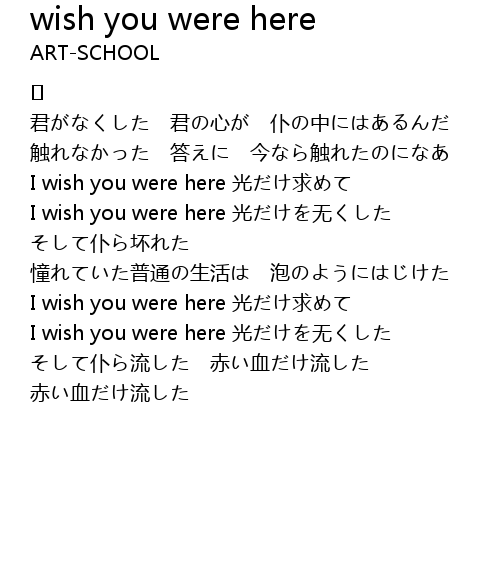 wish you were here
ART-SCHOOL
[]
君がなくした　君の心が　仆の中にはあるんだ
触れなかった　答えに　今なら触れたのになあ
I wish you were here 光だけ求めて
I wish you were here 光だけを无くした
そして仆ら坏れた
憧れていた普通の生活は　泡のようにはじけた
I wish you were here 光だけ求めて
I wish you were here 光だけを无くした
そして仆ら流した　赤い血だけ流した
赤い血だけ流した